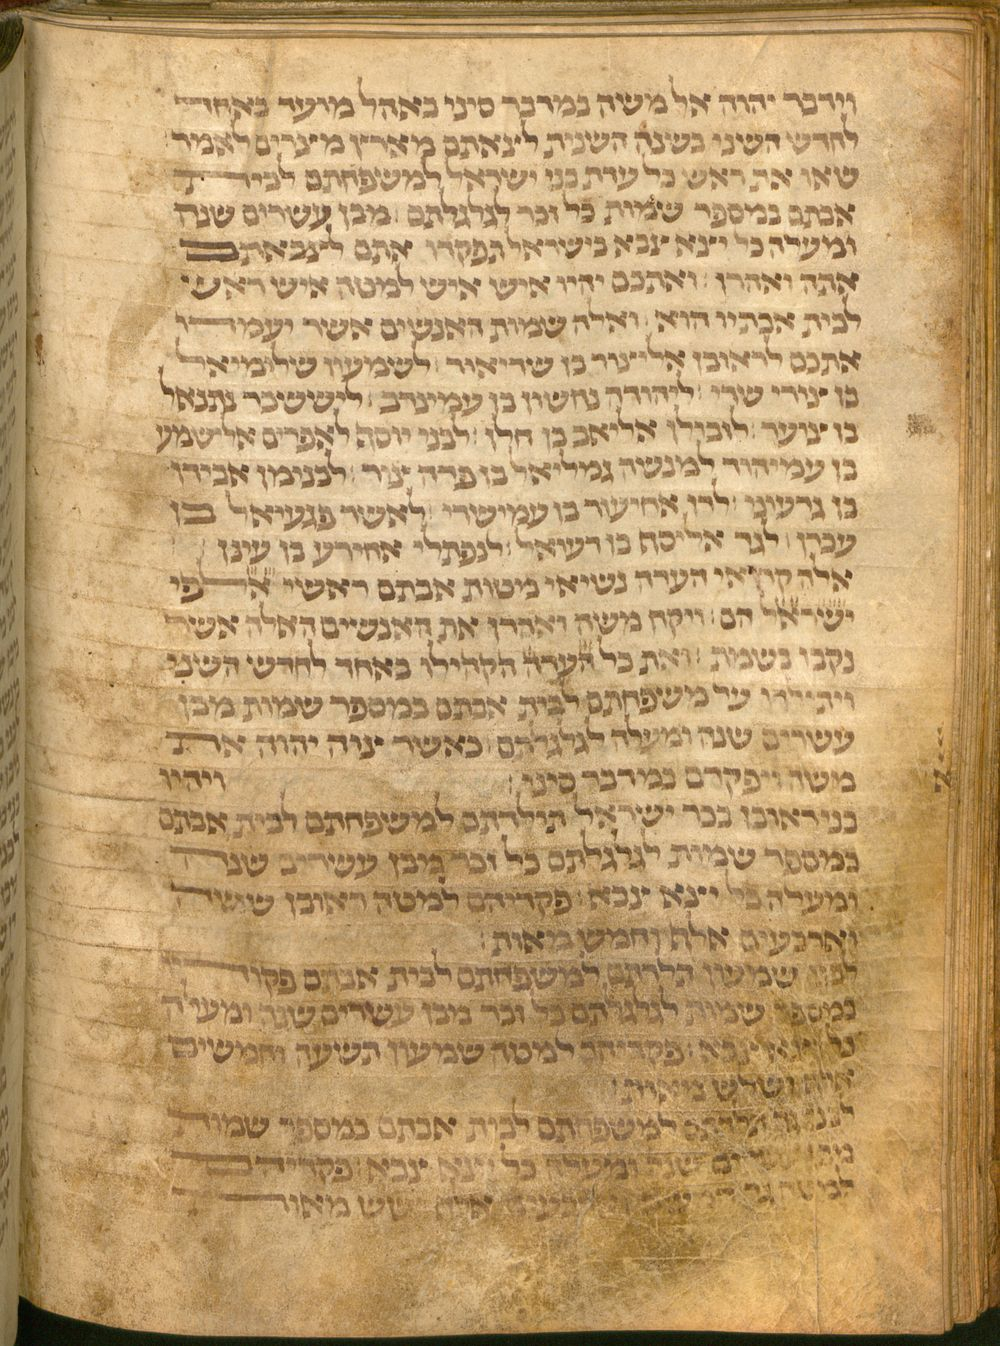 וידבר יהוה אל משה במדבר סיני באהל מועד באחד
לחדש השני בשנה השנית לצאתם מארץ מצרים לאמר
שאו את ראש כל עדת בני ישראל למשפחתם לבית
אבתם במספר שמות כל זכר לגלגלתם מבן עשרים שנה
ומעלה כל יצא צבא בישראל תפקדו אתם לצבאתם
אתה ואהרן ואתכם יהיו איש איש למטה איש ראש
לבית אבתיו הוא ואלה שמות האנשים אשר יעמדו
אתכם לראובן אליצור בן שדיאור לשמעון שלומיאל
בן צורי שדי ליהודה נחשון בן עמינדב לישששכר נתנאל
בן צוער לזבולן אליאב בן חלן לבני יוסף לאפרים אלישמע
בן עמיהוד למנשה גמליאל בן פדה צור לבנימן אבידן
בן גדעוני לדן אחיעזר בן עמישדי לאשר פגעיאל בן
עכרן לגד אליסף בן דעואל לנפתלי אחירע בן עינן
אלה קרואי העדה נשיאי מטות אבתם ראשי אלפי
ישראל הם ויקח משה ואהרן את האנשים האלה אשר
נקבו בשמת ואת כל העדה הקהילו באחד לחדש השני
ויתילדו על משפחתם לבית אבתם במספר שמות מבן
עשרים שנה ומעלה לגלגלתם כאשר צוה יהוה את
משה ויפקדם במדבר סיני ויהיו
בני ראובן בכר ישראל תולדתם למשפחתם לבית אבתם
במספר שמות לגלגלתם כל זכר מבן עשרים שנה
ומעלה כל יצא צבא פקדיהם למטה ראובן ששה
וארבעים אלף וחמש מאות
לבני שמעון תולדתם למשפחתם לבית אבתם פקודיו
במספר שמות לגלגלתם כל זכר מבן עשרים שנה ומעלה
כל יצא צבא פקדיהם למטה שמעון תשעה וחמשים
אלף ושלש מאות
לבני גד תולדתם למשפחתם לבית אבתם במספר שמות
מבן עשרים שנה ומעלה כל יצא צבא פקדיהם
למטה גד וארבעים אלף שש מאות